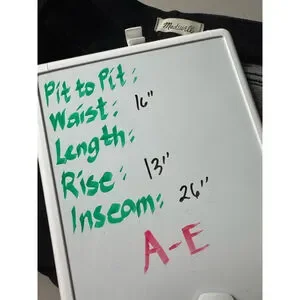 Madewell
Pit to Pit:
Waist: 16"
Length:
Rise: 13"
Inseam: 26"
A-E